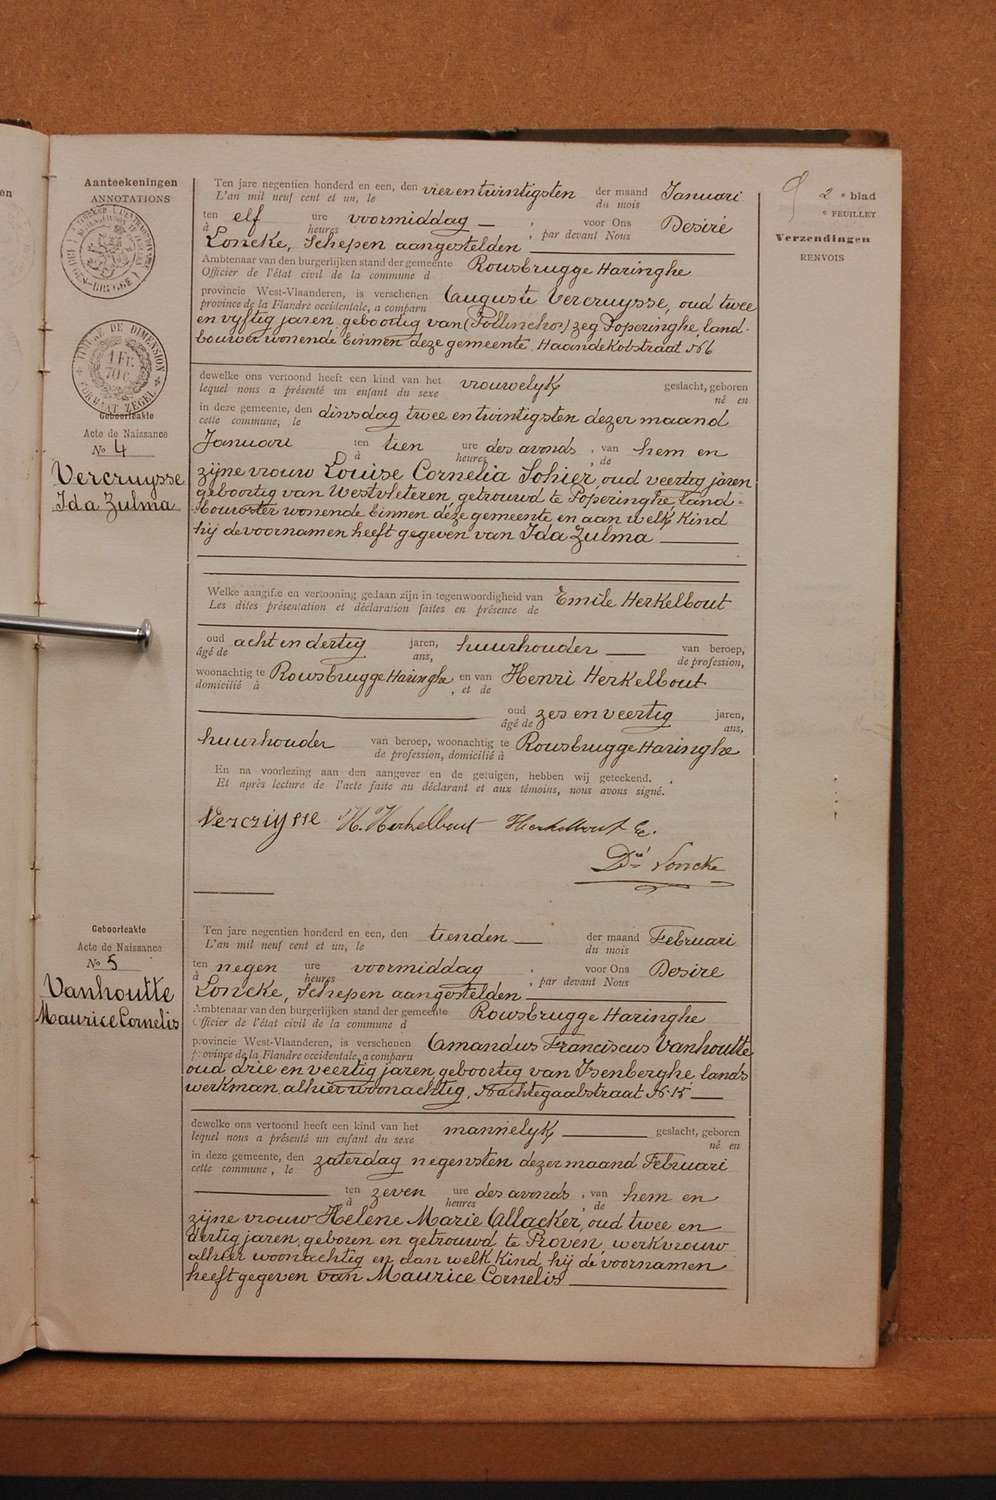 Aanteekeningen
ANNOTATIONS
TIMBRE DE DIMENSION
1 FR.
70 C.
FORMAAT ZEGEL
Geboorteakte
Acte de Naissance
No 4
Vercruysse
Ida Zulma
2e blad
e FEUILLET
Verzendingen
RENVOIS
Ten jare negentien honderd en een, den vier en twintigsten der maand Januari
L'an mil neuf cent et un, le du mois
ten elf ure voormiddag — , voor Ons Desiré
à heures , par devant Nous
Loncke, Schepen aangestelden
Ambtenaar van den burgerlijken stand der gemeente Rousbrugge Haringhe
Officier de l'état civil de la commune d
provincie West-Vlaanderen, is verschenen Auguste Vercruysse, oud twee
province de la Flandre occidentale, a comparu
en vyftig jaren, geboortig van (Pollinchos) zeg Poperinghe, land-
bouwer wonende binnen deze gemeente Haandekotstraat No 6
dewelke ons vertoond heeft een kind van het vrouwelyk geslacht, geboren
lequel nous a présenté un enfant du sexe né en
in deze gemeente, den dinsdag twee en twintigsten dezer maand
cette commune, le
Januari ten tien ure des avonds , van hem en
à heures , de
zijne vrouw Louise Cornelia Sohier, oud veertig jaren
geboortig van Westvleteren, getrouwd te Poperinghe, land-
bouwster wonende binnen deze gemeente en aan welk kind
hij de voornamen heeft gegeven van Ida Zulma
Welke aangifte en vertooning gedaan zijn in tegenwoordigheid van Emile Herkelbout
Les dites présentation et déclaration faites en présence de
oud acht en dertig jaren, huurhouder — van beroep,
âgé de ans, de profession,
woonachtig te Rousbrugge Haringhe en van Henri Herkelbout
domicilié à , et de
oud zes en veertig jaren,
âgé de ans,
huurhouder van beroep, woonachtig te Rousbrugge Haringhe
de profession, domicilié à
En na voorlezing aan den aangever en de getuigen, hebben wij geteekend.
Et après lecture de l'acte faite au déclarant et aux témoins, nous avons signé.
Vercruysse H. Herkelbout Herkelbout E.
Dré Loncke
Geboorteakte
Acte de Naissance
No 5
Vanhoutte
Maurice Cornelis
Ten jare negentien honderd en een, den tienden — der maand Februari
L'an mil neuf cent et un, le du mois
ten negen ure voormiddag , voor Ons Desire
à heures , par devant Nous
Loncke, Schepen aangestelden
Ambtenaar van den burgerlijken stand der gemeente Rousbrugge Haringhe
Officier de l'état civil de la commune d
provincie West-Vlaanderen, is verschenen Amandus Franciscus Vanhoutte
province de la Flandre occidentale, a comparu
oud drie en veertig jaren geboortig van Isenberghe, lands
werkman, alhier woonachtig, Nachtegaalstraat No 15
dewelke ons vertoond heeft een kind van het mannelyk geslacht, geboren
lequel nous a présenté un enfant du sexe né en
in deze gemeente, den zaterdag negensten dezer maand Februari
cette commune, le
ten zeven ure des avonds , van hem en
à heures , de
zijne vrouw Helene Marie Allacker, oud twee en
dertig jaren, geboren en getrouwd te Proven, werkvrouw
alhier woonachtig en aan welk kind hij de voornamen
heeft gegeven van Maurice Cornelis